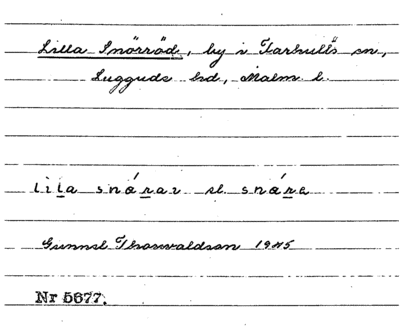 Lilla Snörröd, by i Farhults sn,
Lugguds hd, Malm. l.
lila snárar el. snára
Gunnel Thorwaldson 1945
Nr 5677.